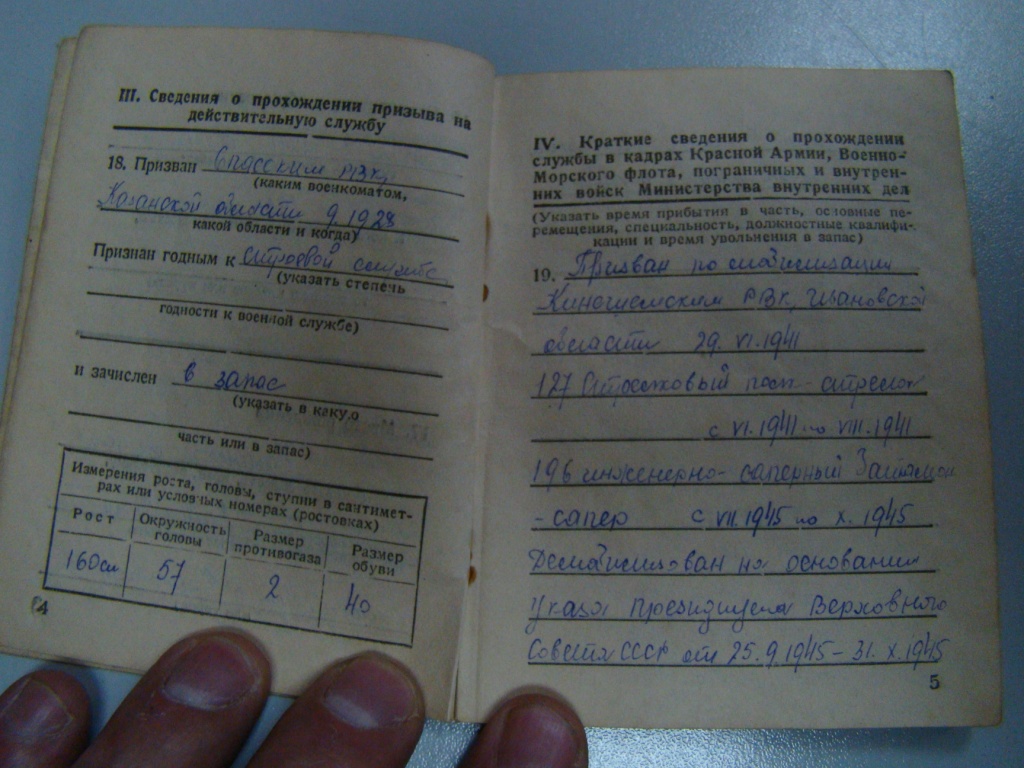 III. Сведения о прохождении призыва на
действительную службу
18. Призван Спасским РВК,
(каким военкоматом,
Казанской области 9.1928
какой области и когда)
Признан годным к строевой службе
(указать степень
годности к военной службе)
и зачислен в запас
(указать в какую
часть или в запас)
Измерения роста, головы, ступни в сантимет-
рах или условных номерах (ростовках)
Рост Окружность головы Размер противогаза Размер обуви
160см 57 2 40
4
IV. Краткие сведения о прохождении
службы в кадрах Красной Армии, Военно-
Морского флота, пограничных и внутрен-
них войск Министерства внутренних дел
(Указать время прибытия в часть, основные пе-
ремещения, специальность, должностные квалифи-
кации и время увольнения в запас)
19. Призван по мобилизации
Кинешемским РВК, Ивановской
области 29.VI.1941
127 Стрелковый полк - стрелок
с VI.1941 по VIII.1941
196 инженерно-саперный
- сапер с VII.1945 по X.1945
Демобилизован на основании
Указа Президиума Верховного
Совета СССР от 25.9.1945 - 31.X.1945
5